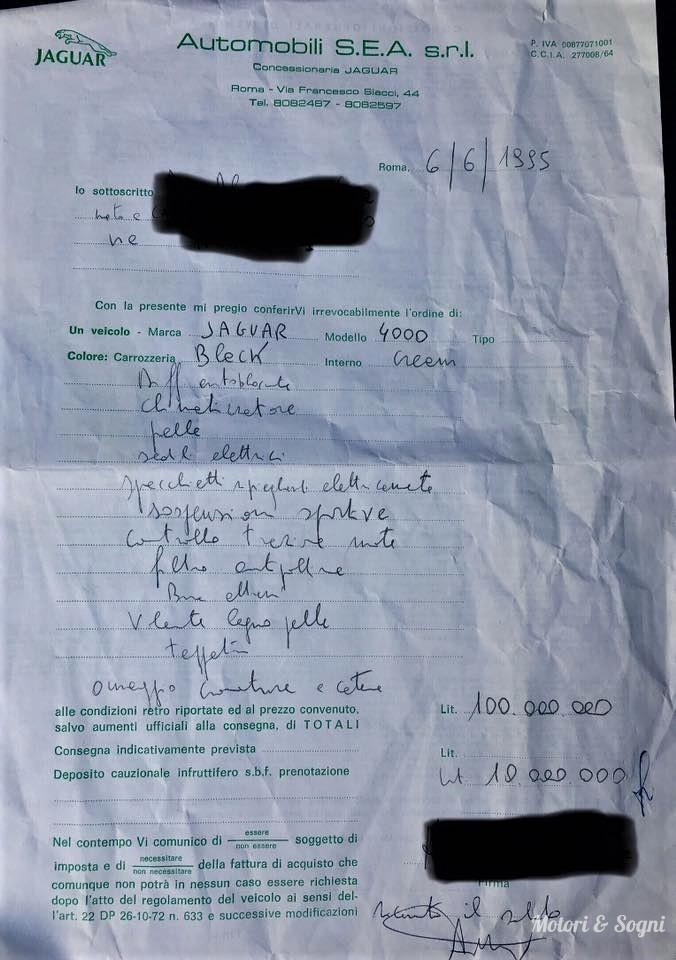 JAGUAR
Automobili S.E.A. s.r.l.
Concessionaria JAGUAR
Roma - Via Francesco Siacci, 44
Tel. 8082487 - 8082597
P. IVA 00877071001
C.C.I.A. 277008/64
Roma, 6/6/1995
Io sottoscritto
ne
Con la presente mi pregio conferirVi irrevocabilmente l'ordine di:
Un veicolo - Marca JAGUAR Modello 4000 Tipo
Colore: Carrozzeria Black Interno Cream
Diff autobloccante
climatizzatore
pelle
sedili elettrici
specchietti ripiegabili elettricamente
sospensioni sportive
controllo trazione ruote
filtro antipolline
Volante legno pelle
Tappetini
omaggio e catene
alle condizioni retro riportate ed al prezzo convenuto,
salvo aumenti ufficiali alla consegna, di TOTALI
Lit. 100.000.000
Consegna indicativamente prevista
Lit.
Deposito cauzionale infruttifero s.b.f. prenotazione
Lit 10.000.000
Nel contempo Vi comunico di essere / non essere soggetto di
imposta e di necessitare / non necessitare della fattura di acquisto che
comunque non potrà in nessun caso essere richiesta
dopo l'atto del regolamento del veicolo ai sensi del-
l'art. 22 DP 26-10-72 n. 633 e successive modificazioni
Firma
il saldo
Motori & Sogni